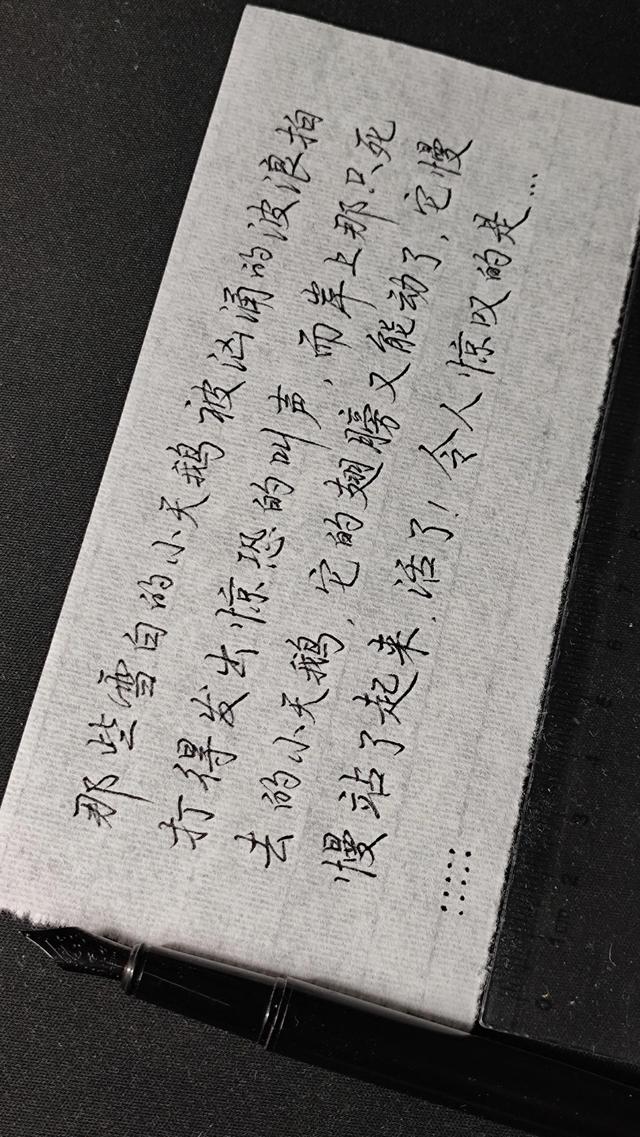 那些雪白的小天鹅被汹涌的波浪拍
打得发出惊恐的叫声，而岸上那只死
去的小天鹅，它的翅膀又能动了，它慢
慢站了起来，活了！令人惊叹的是…
……
0 1cm 2 3 4 5 6 7 8